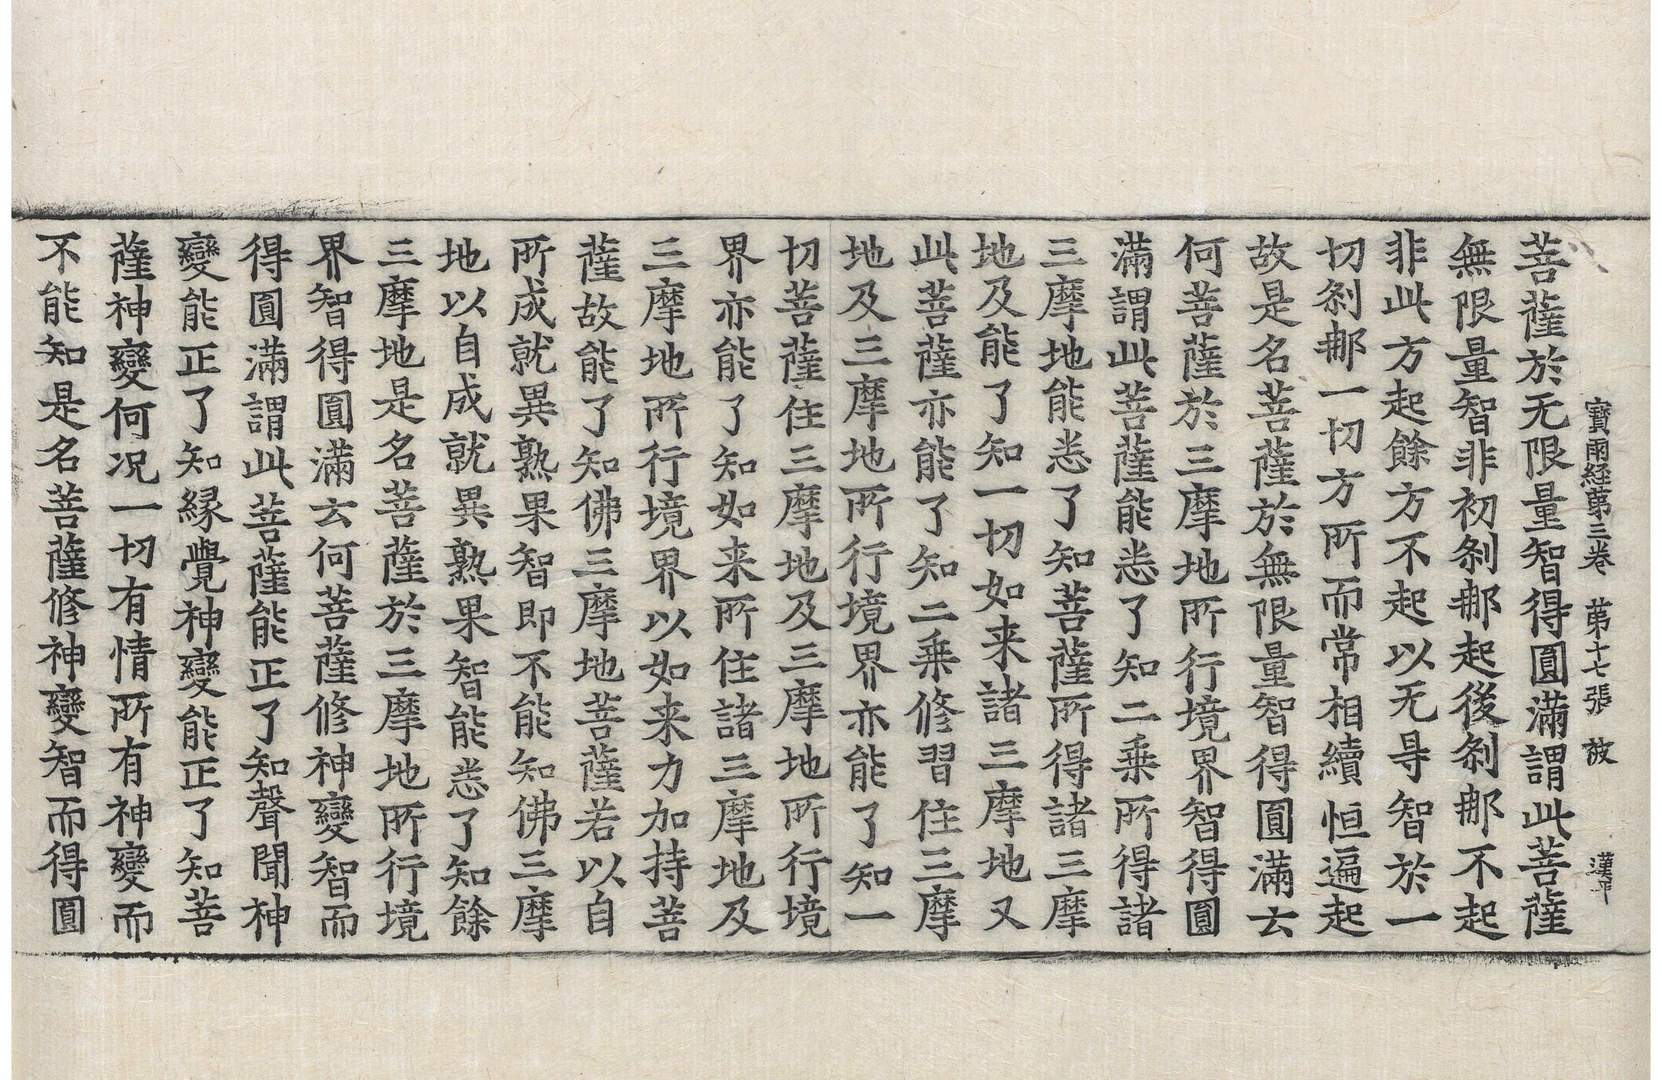 寶雨経苐三卷 苐十七張 㳒 漢平
菩薩於无限量智得圓滿謂此菩薩
無限量智非初剎那起後剎那不起
非此方起餘方不起以无㝵智於一
切剎那一切方所而常相續恒遍起
故是名菩薩於無限量智得圓滿云
何菩薩於三摩地所行境界智得圓
滿謂此菩薩能悉了知二乗所得諸
三摩地能悉了知菩薩所得諸三摩
地及能了知一切如来諸三摩地又
此菩薩亦能了知二乗修習住三摩
地及三摩地所行境界亦能了知一
切菩薩住三摩地及三摩地所行境
界亦能了知如来所住諸三摩地及
三摩地所行境界以如来力加持菩
薩故能了知佛三摩地菩薩若以自
所成就異熟果智即不能知佛三摩
地以自成就異熟果智能悉了知餘
三摩地是名菩薩於三摩地所行境
界智得圓滿云何菩薩修神變智而
得圓滿謂此菩薩能正了知聲聞神
變能正了知縁覺神變能正了知菩
薩神變何况一切有情所有神變而
不能知是名菩薩修神變智而得圓